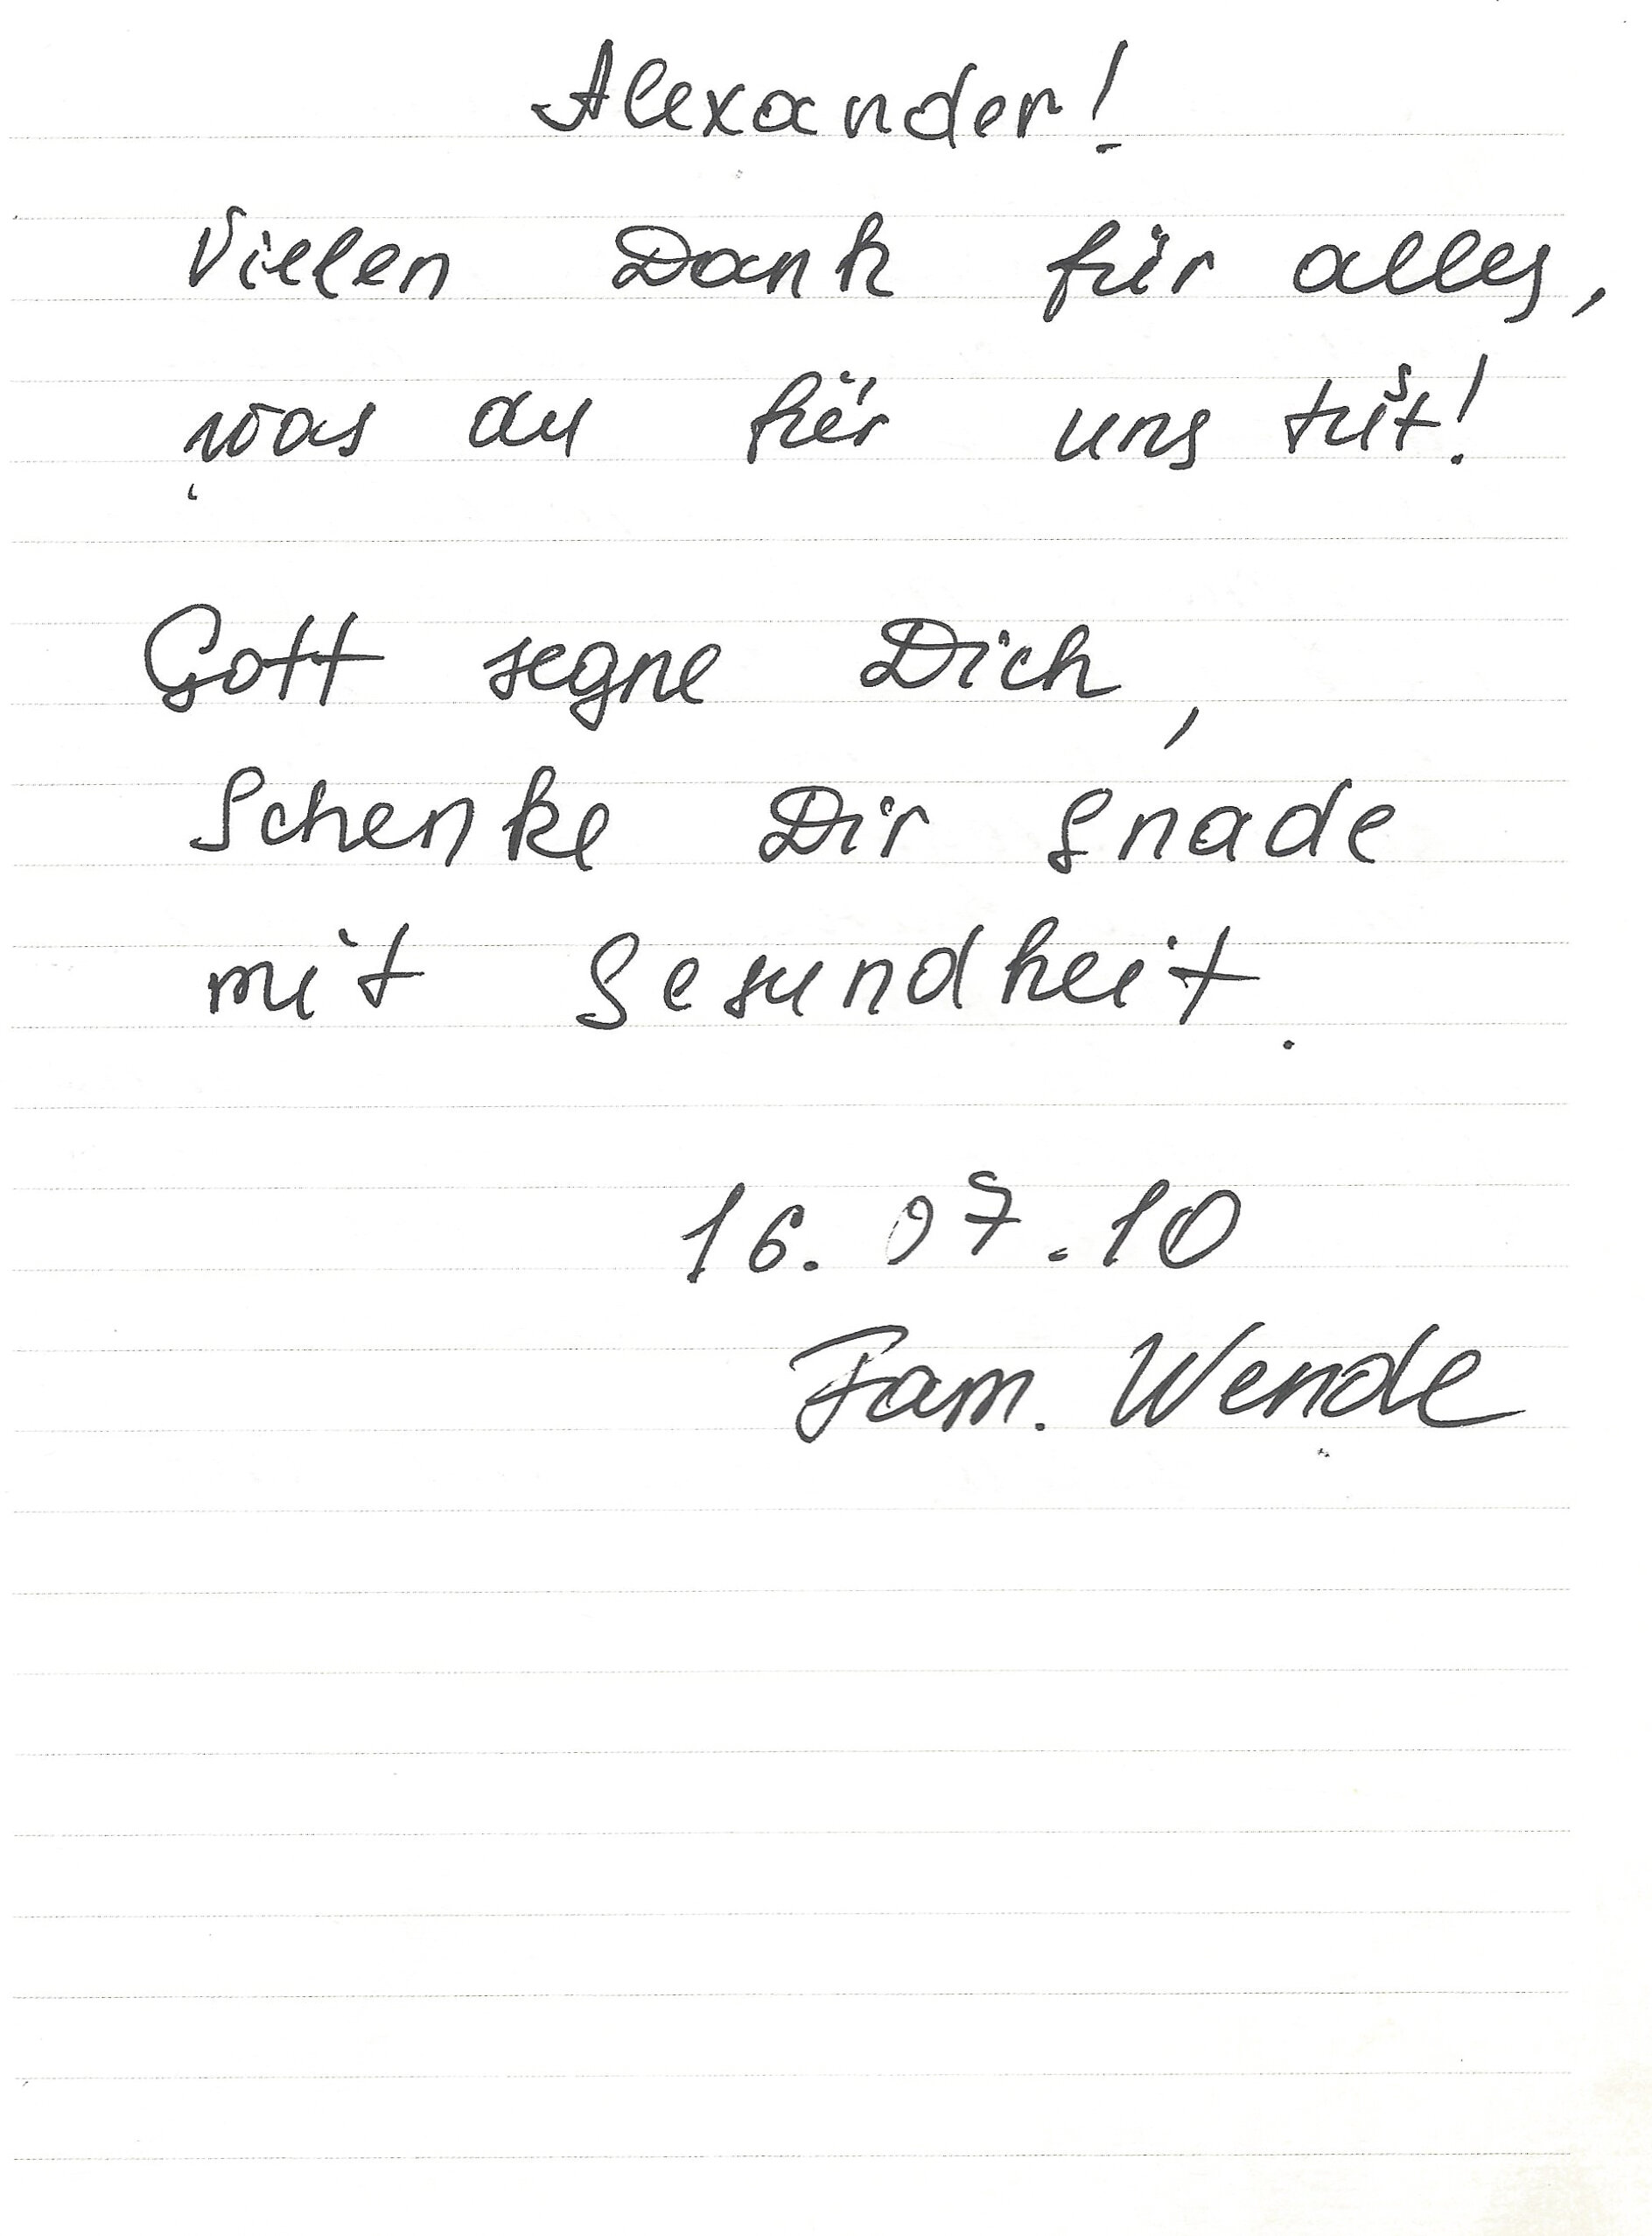 Alexander!
Vielen Dank für alles,
was du für uns tust!
Gott segne Dich,
Schenke Dir Gnade
mit Gesundheit.
16.07.10
Fam. Wende